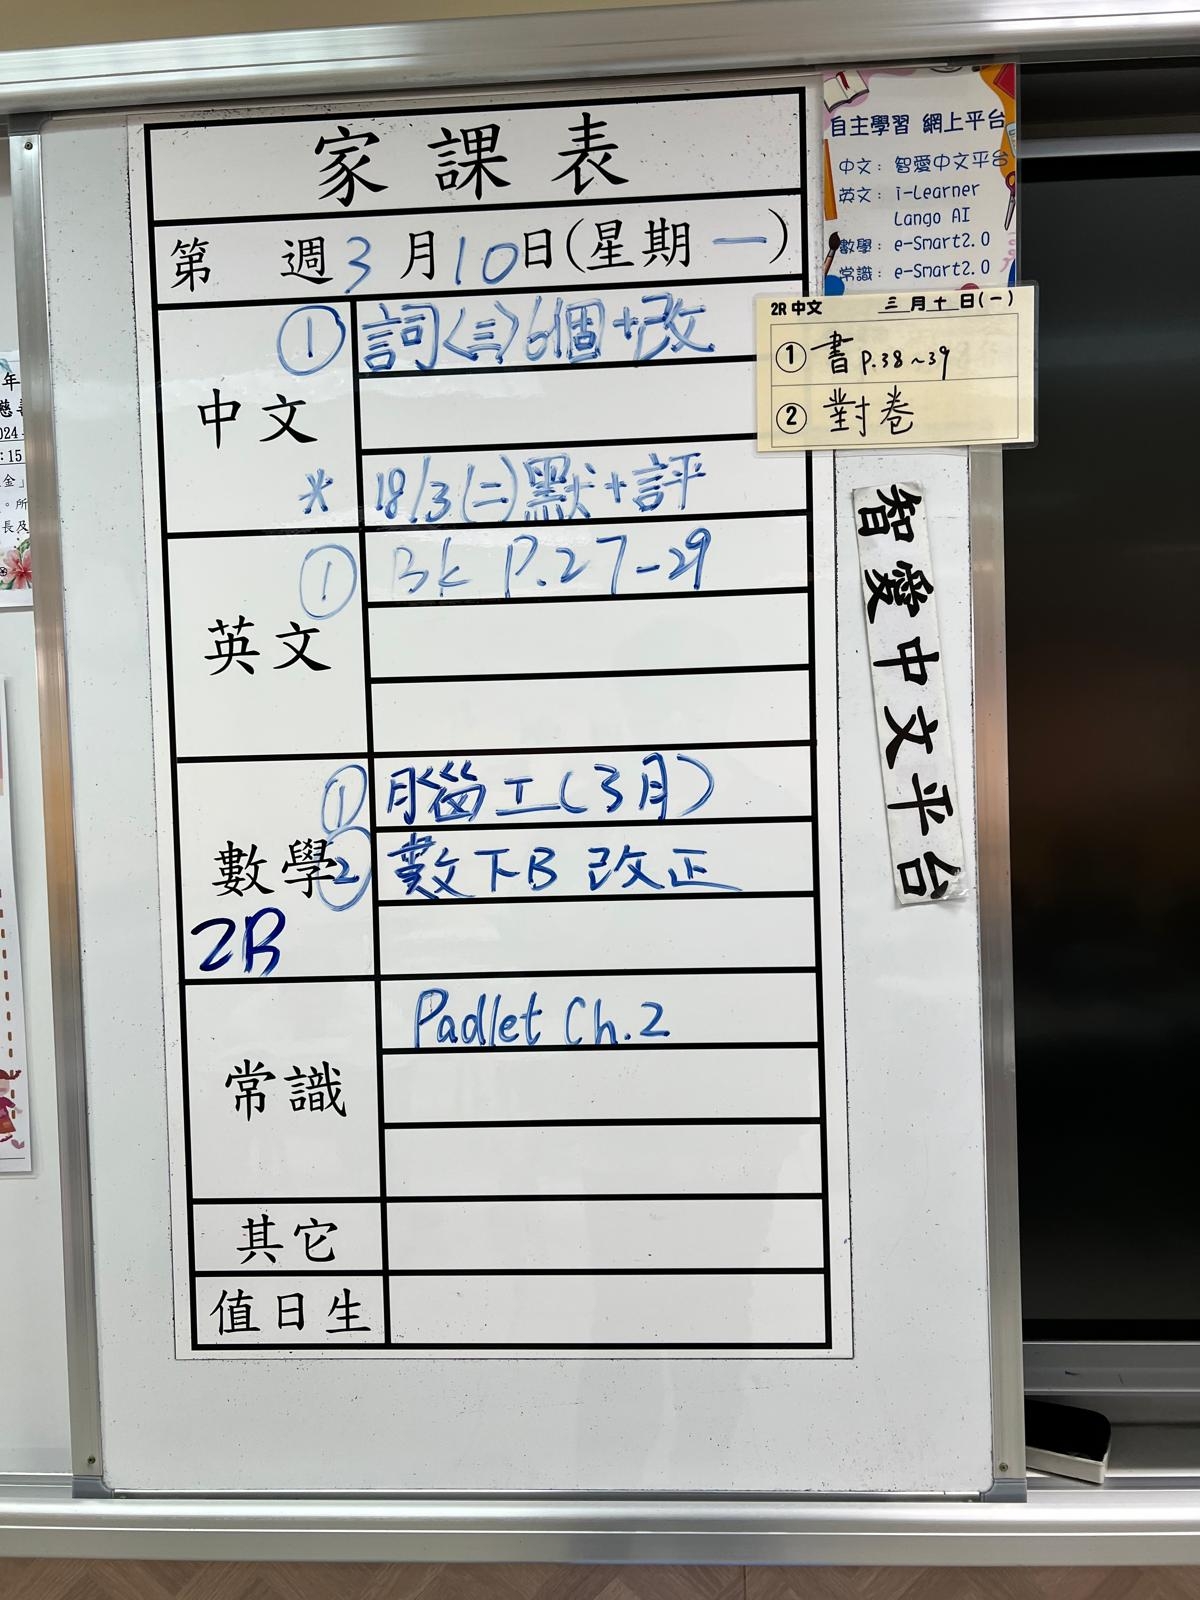 家課表
第 週3月10日(星期一)
中文
① 詞〈三〉6個+改
* 18/3(二)默+評
英文
① Bk P.27-29
數學
2R
① 腦工(3月)
② 數下B 改正
常識
Padlet Ch.2
其它
值日生
自主學習 網上平台
中文: 智愛中文平台
英文: i-Learner
Lango AI
數學: e-Smart2.0
常識: e-Smart2.0
2R 中文 三月十日(一)
① 書 P.38~39
② 對卷
智愛中文平台
年
024
:15
金」
。所
長及